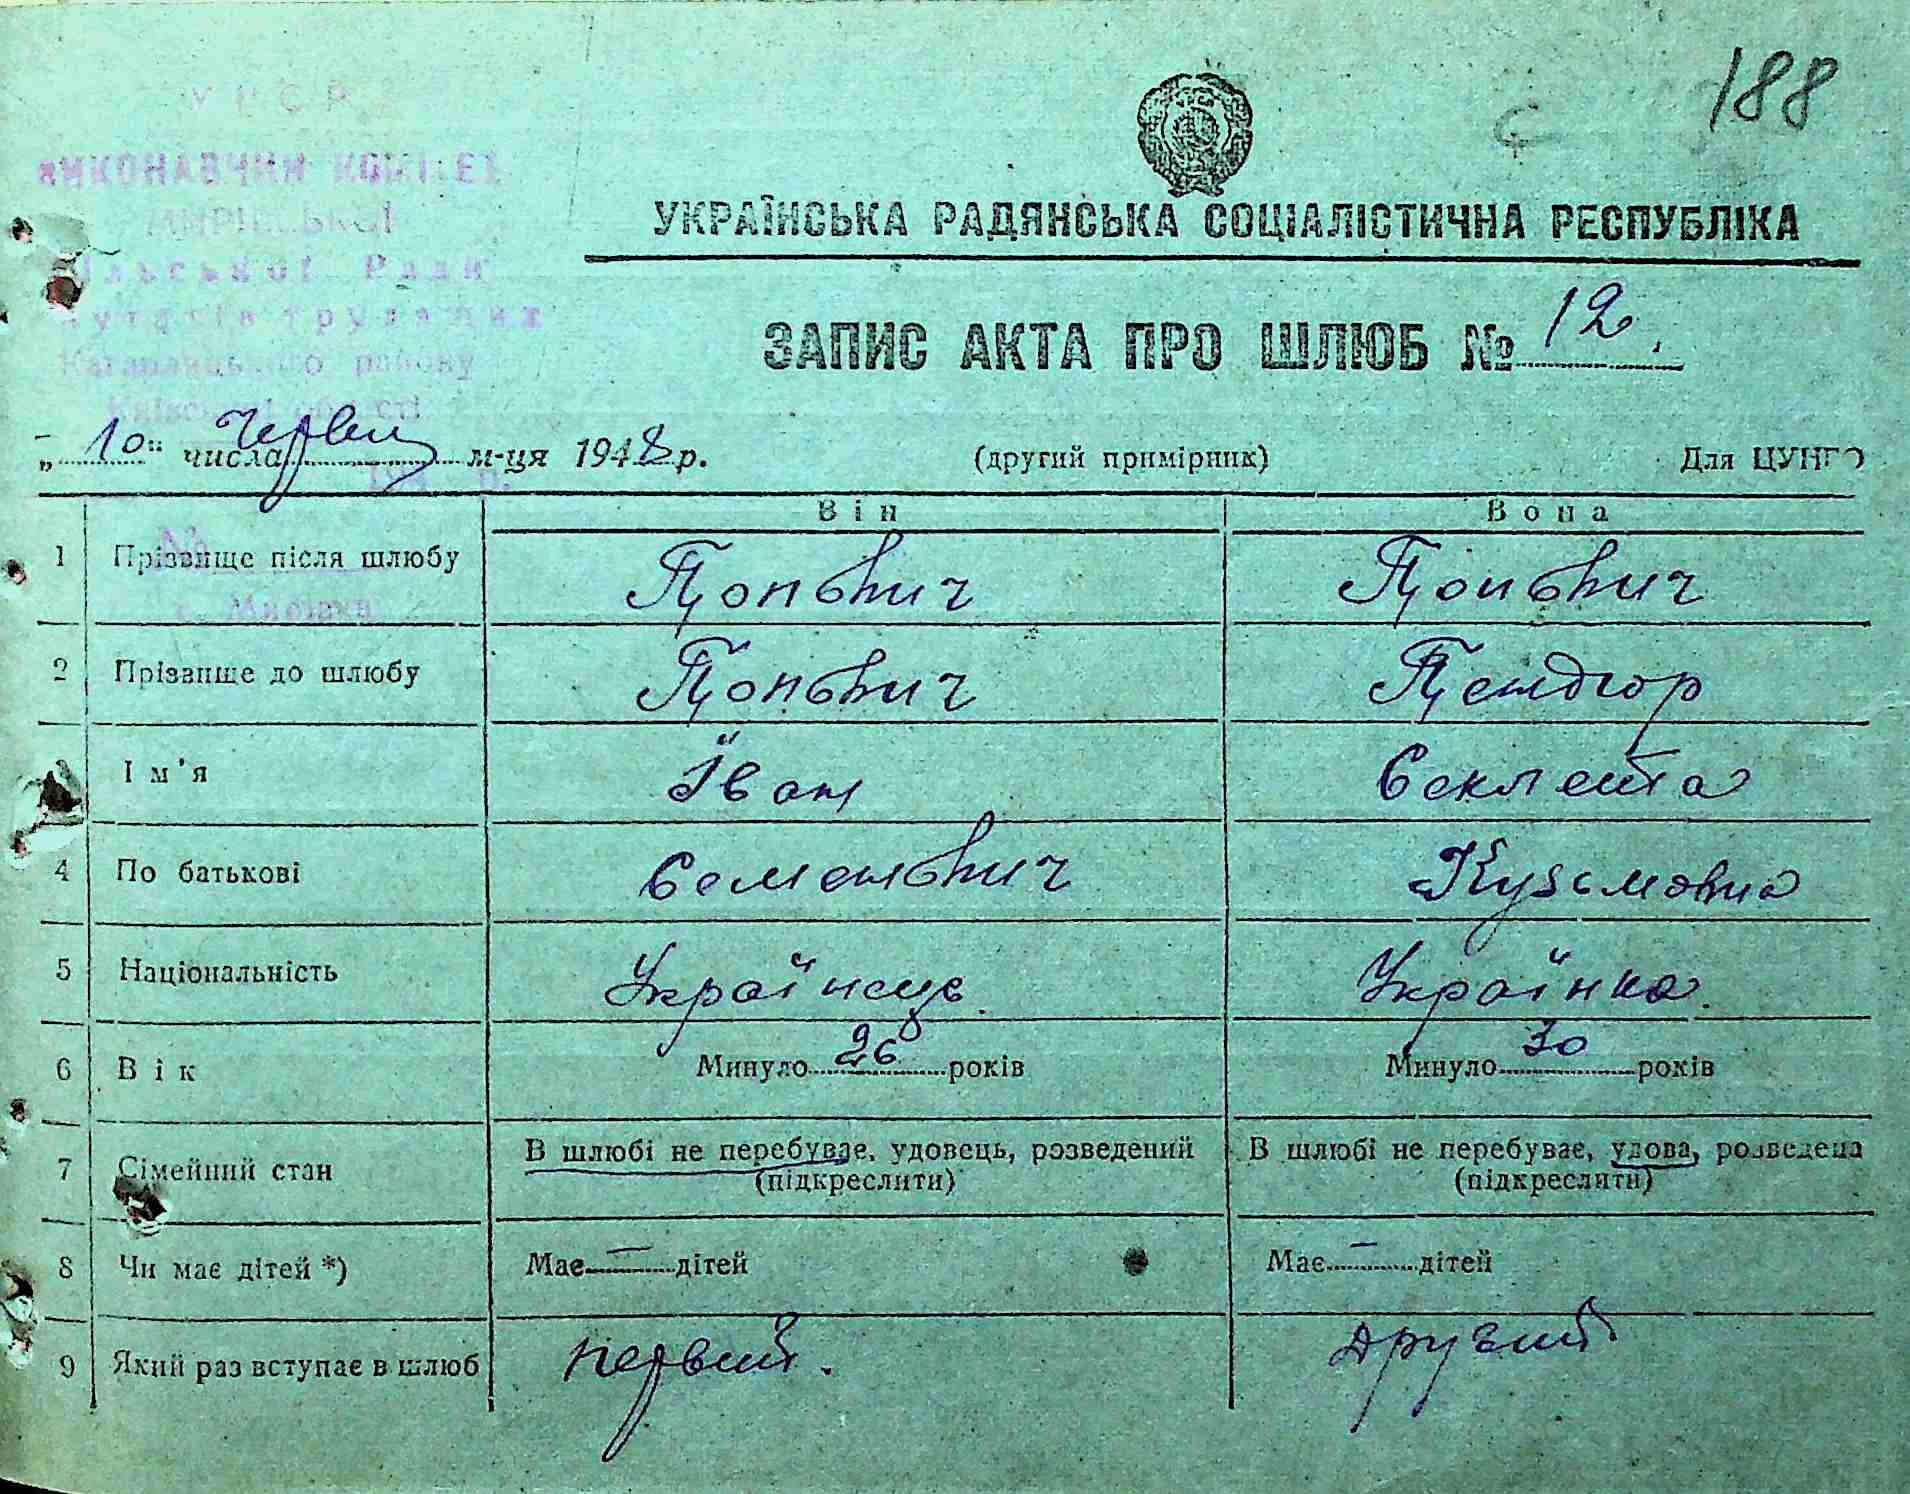 188
УРСР
ВИКОНАВЧИЙ КОМІТЕТ
сільської Ради
депутатів трудящих
Кагарлицького району
Київської області
УКРАЇНСЬКА РАДЯНСЬКА СОЦІАЛІСТИЧНА РЕСПУБЛІКА
ЗАПИС АКТА ПРО ШЛЮБ № 12
„10" числа Червня м-ця 1948 р. (другий примірник) Для ЦУНГО
Він Вона
1 Прізвище після шлюбу Попович Попович
2 Прізвище до шлюбу Попович
3 Ім'я Іван Секлета
4 По батькові Семенович Кузьмовна
5 Національність Українець Українка
6 Вік Минуло 26 років Минуло 30 років
7 Сімейний стан В шлюбі не перебуває, удовець, розведений В шлюбі не перебуває, удова, розведена
(підкреслити) (підкреслити)
8 Чи має дітей *) Має — дітей Має — дітей
9 Який раз вступає в шлюб первий. другий